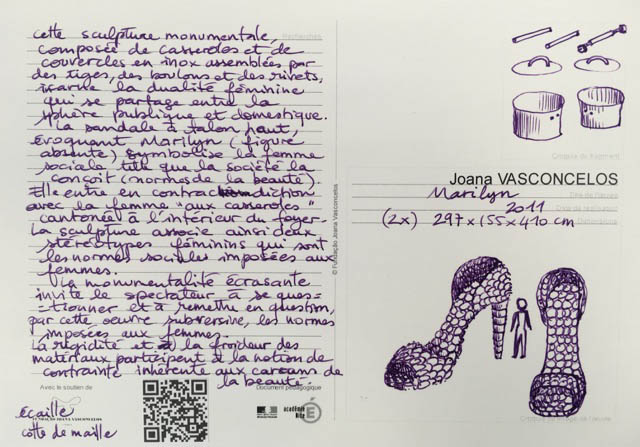 cette sculpture monumentale,
composée de casseroles et de
couvercles en inox assemblées par
des tiges, des boulons et des rivets,
incarne la dualité féminine
qui se partage entre la
sphère publique et domestique.
La sandale à talon haut,
évoquant Marilyn (figure
absente) symbolise la femme
sociale telle que la société la
conçoit (normes de la beauté).
Elle entre en contradiction
avec la femme "aux casseroles"
cantonée à l'intérieur du foyer.
La sculpture associe ainsi deux
stéréotypes féminins qui sont
les normes sociales imposées aux
femmes.
La monumentalité écrasante
invite le spectateur à se ques=
=tionner et à remettre en question,
par cette oeuvre subversive, les normes
imposées aux femmes
La rigidité et la froideur des
materiaux participent à la notion de
contrainte inhérente aux canons de
la beauté.
Avec le soutien de
FUNDAÇÃO JOANA VASCONCELOS
Document pédagogique
académie
Nice
écaille
cotte de maille
Recherches
© Fundação Joana Vasconcelos
Croquis du fragment
Joana VASCONCELOS
Titre de l'œuvre
Marilyn
2011
(2x) 297 x 155 x 410 cm
Croquis de l'œuvre